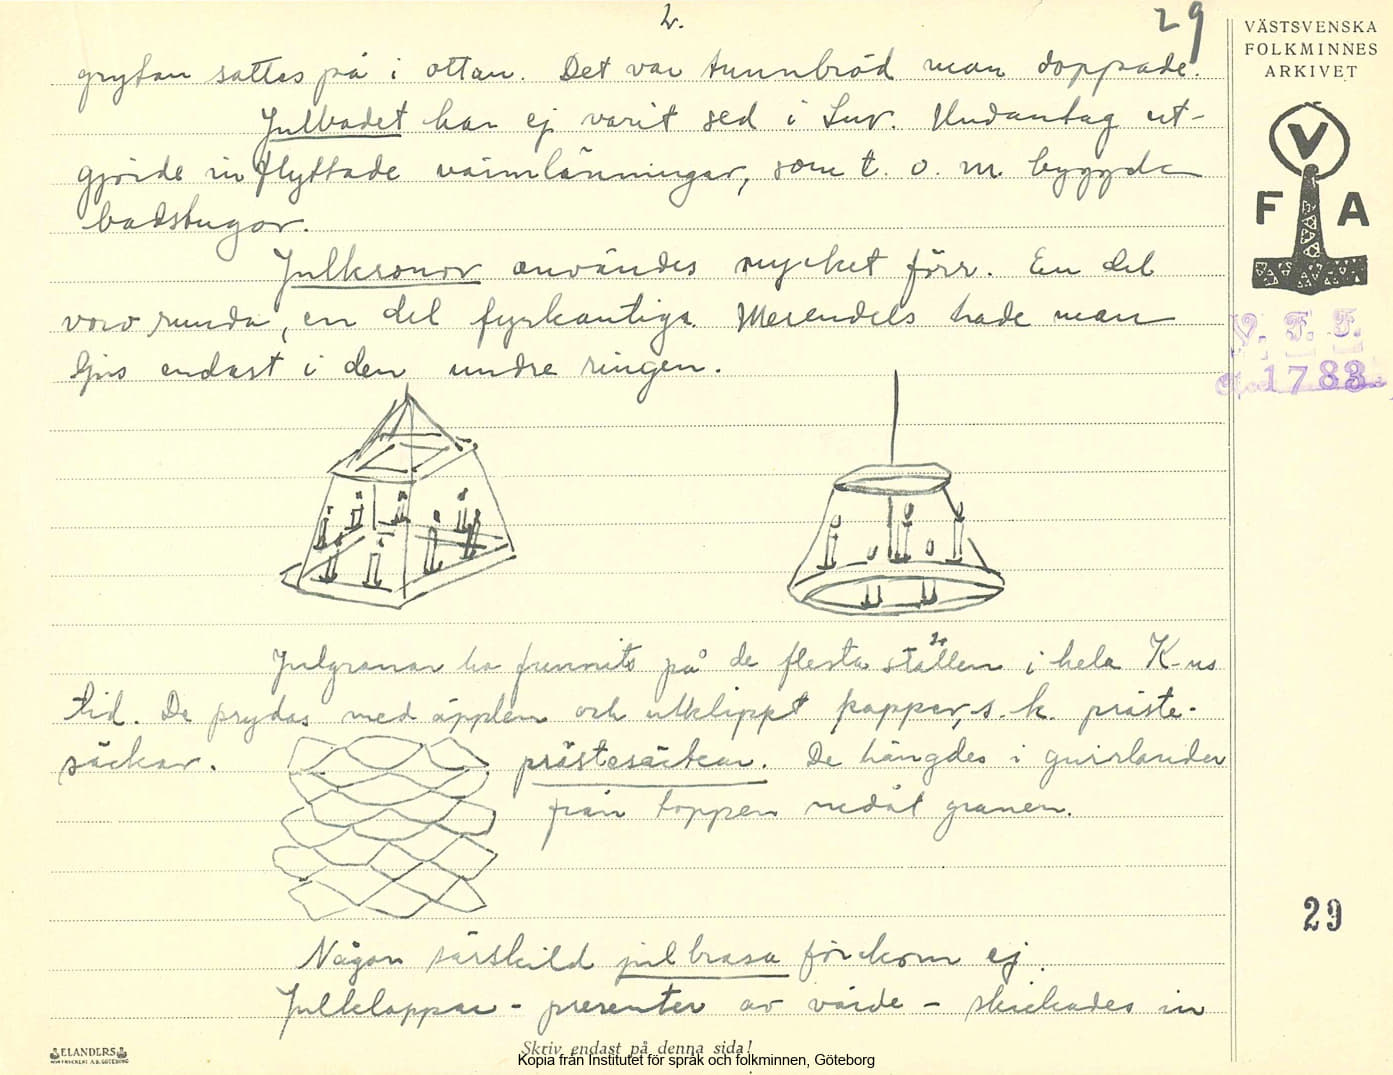 2.
29
VÄSTSVENSKA
FOLKMINNES
ARKIVET
grytan sattes på i ottan. Det var tunnbröd man doppade.
Julbadet har ej varit sed i Luv. Undantag ut-
gjorde inflyttade värmlänningar, som t. o. m. byggde
badstugor.
Julkronor användes mycket förr. En del
voro runda, en del fyrkantiga. Merendels hade man
ljus endast i den undre ringen.
V F A
V. F. F.
1783
Julgranar ha funnits på de flesta ställen i hela K-us
tid. De prydas med äpplen och utklippt papper, s. k. präste-
säckar.
prästesäckar. De hängdes i guirlander
från toppen nedåt granen.
29
Någon särskild julbrasa förekom ej.
Julklappar - presenter av värde - skickades in
Skriv endast på denna sida!
ELANDERS
Kopia från Institutet för språk och folkminnen, Göteborg